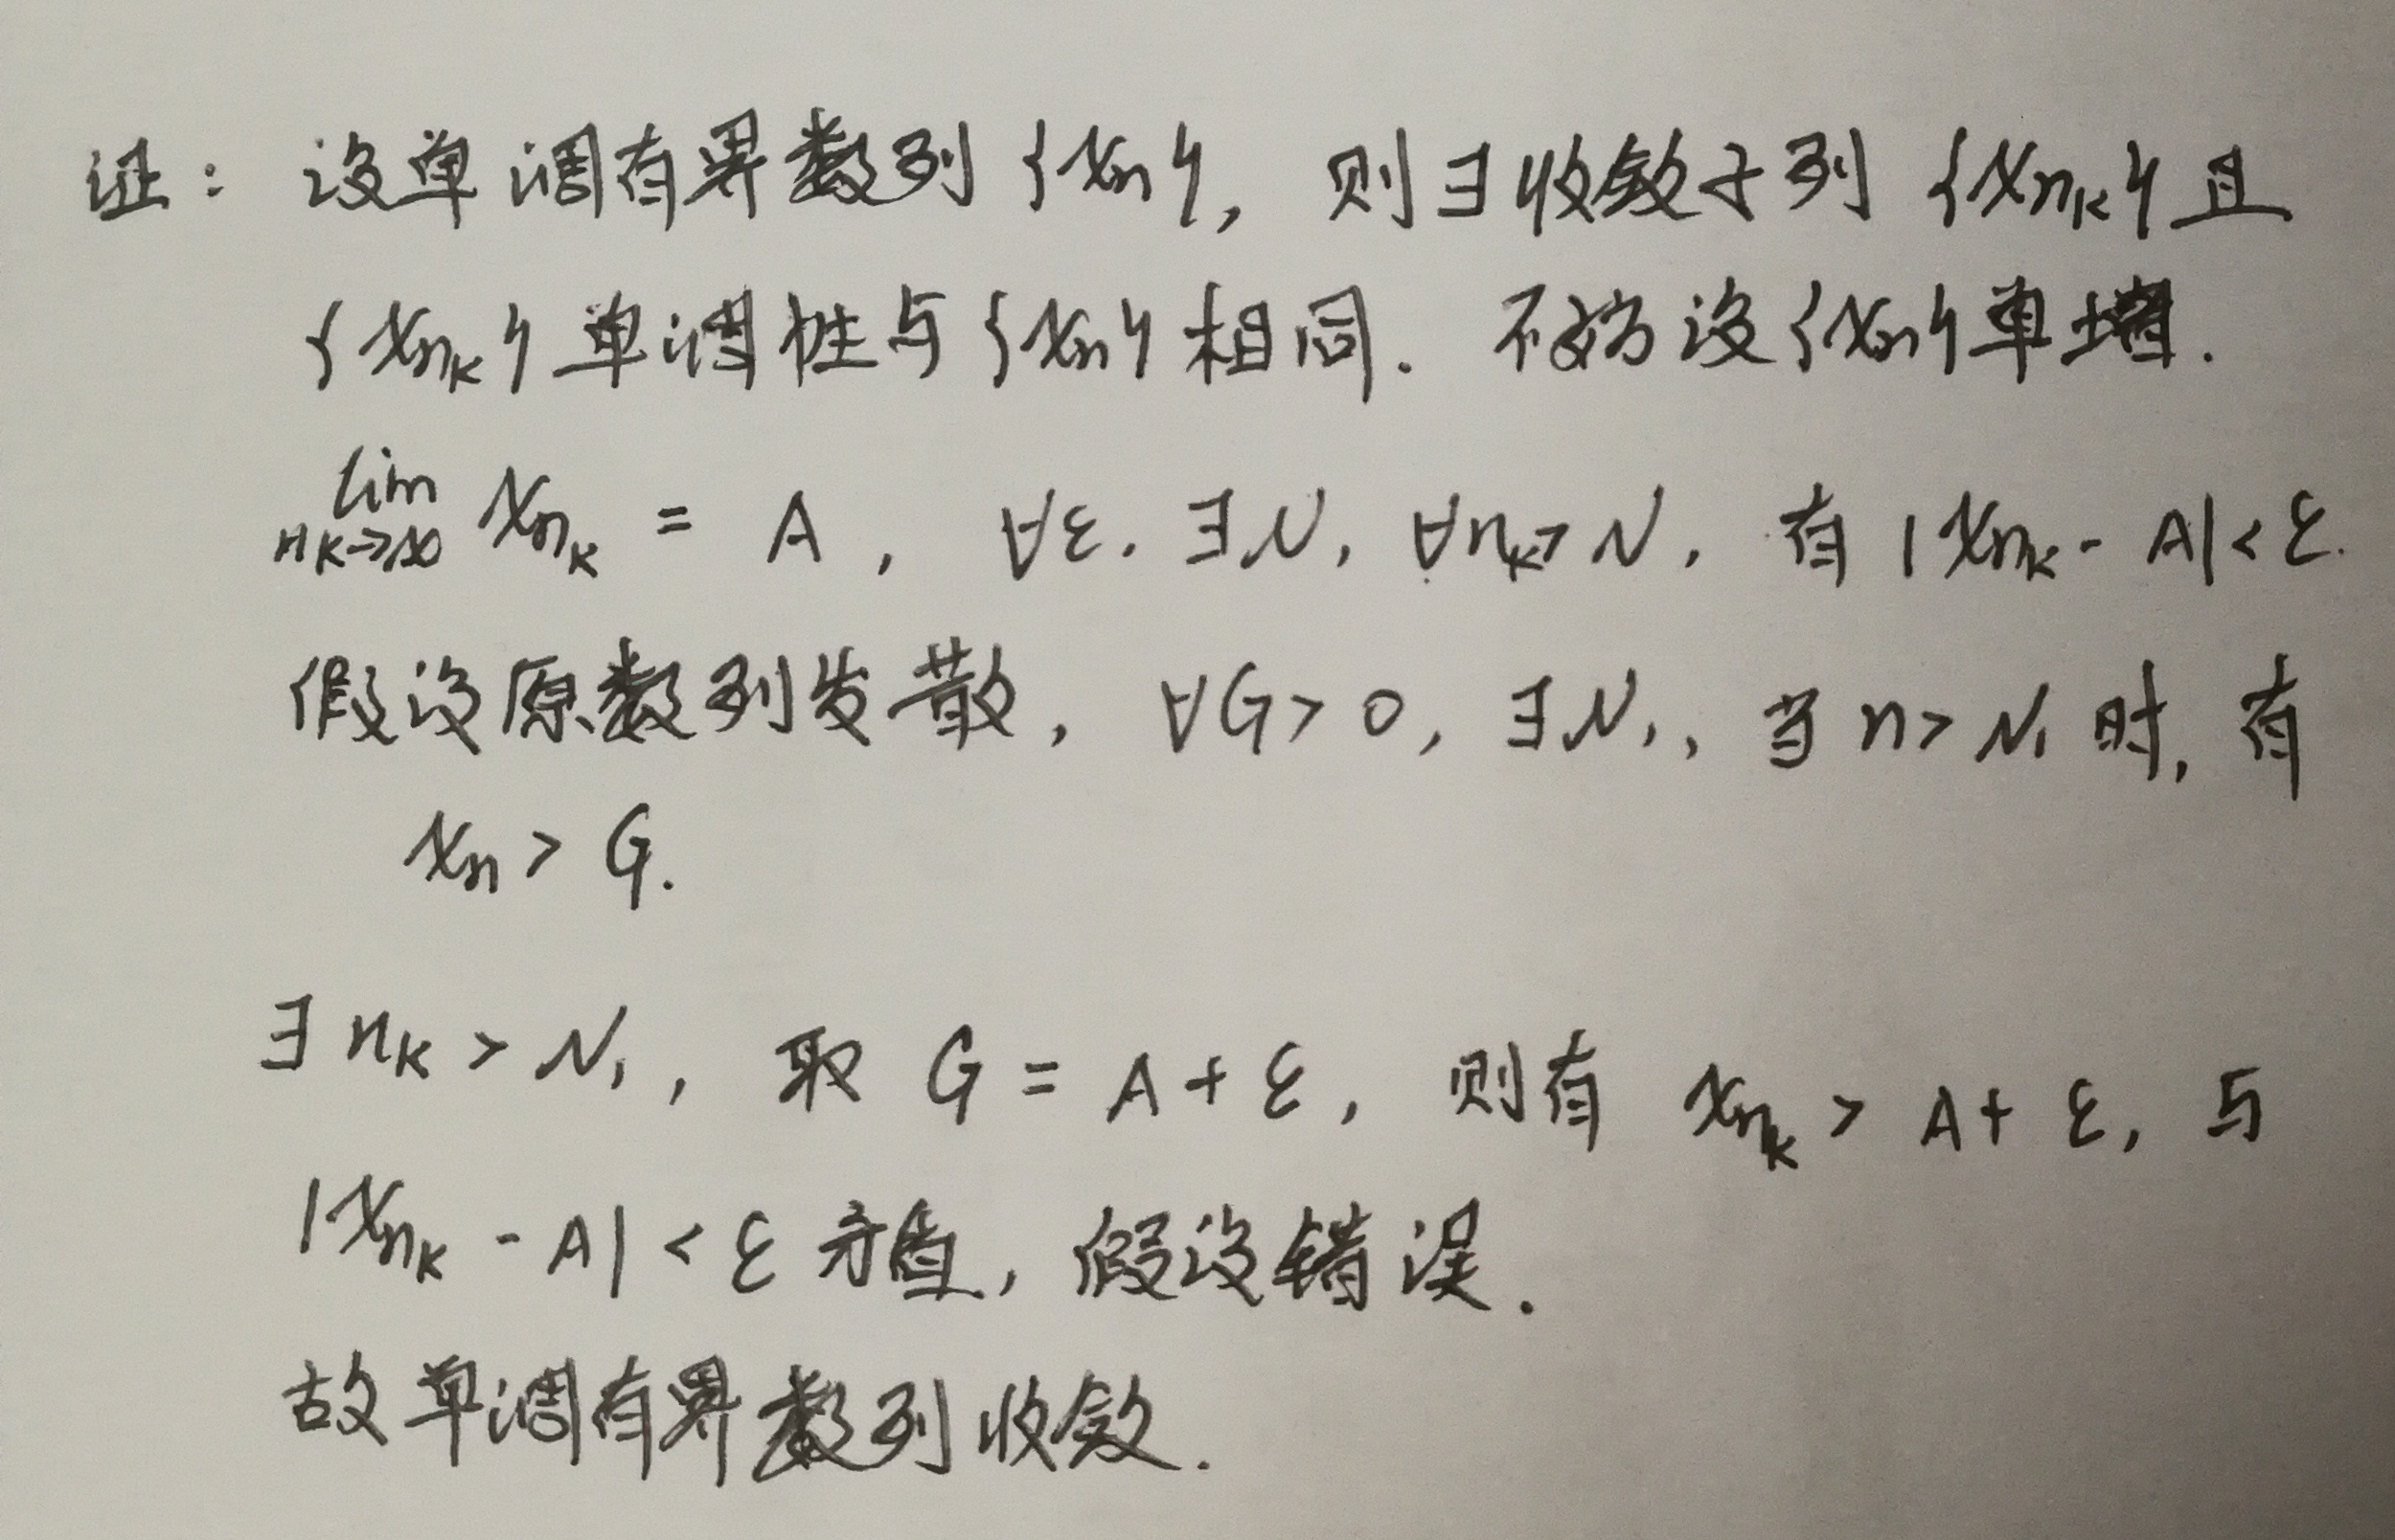 证： 设单调有界数列 {xn}, 则∃收敛子列 {xnk}且
{xnk}单调性与{xn}相同. 不妨设{xn}单增.
lim nk→∞ xnk = A , ∀ε. ∃N, ∀nk>N, 有 |xnk - A|<ε.
假设原数列发散, ∀G>0, ∃N1, 当n>N1时, 有
xn > G.
∃nk > N1, 取 G = A + ε, 则有 xnk > A + ε, 与
|xnk - A| < ε矛盾, 假设错误.
故单调有界数列收敛.